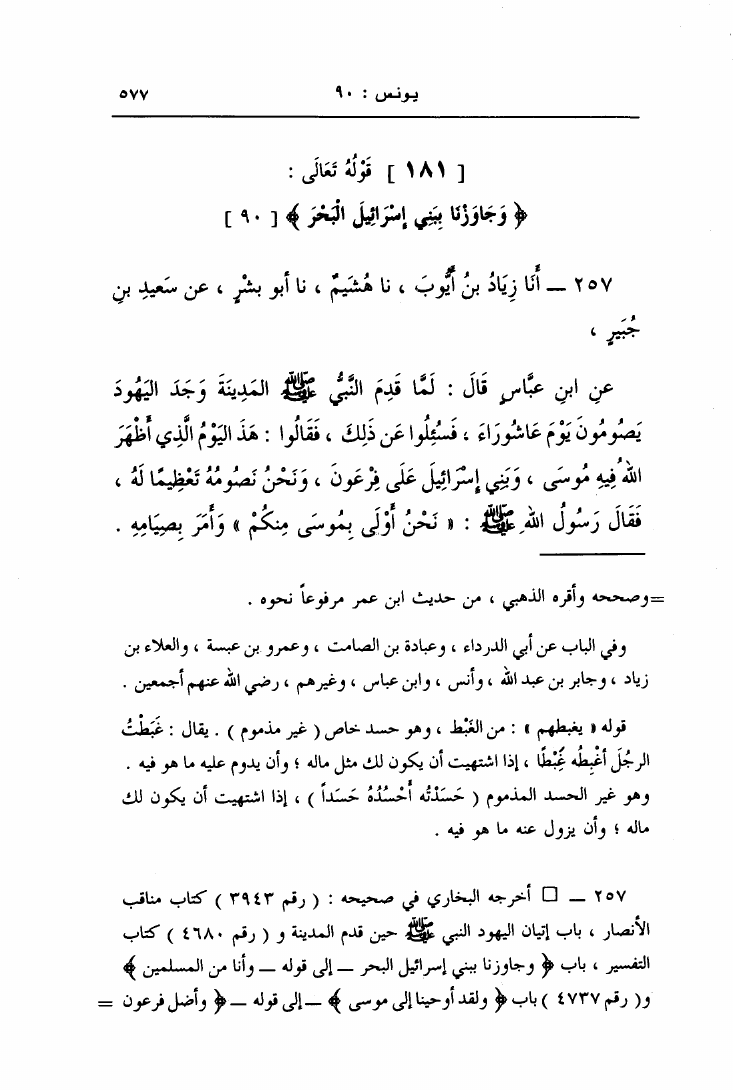 يونس : ٩٠ ٥٧٧
[ ١٨١ ] قَوْلُهُ تَعَالَى :
﴿ وَجَاوَزْنَا بِبَنِي إِسْرَائِيلَ الْبَحْرَ ﴾ [ ٩٠ ]
٢٥٧ — أَنَا زِيَادُ بنُ أَيُّوبَ ، نا هُشَيمٌ ، نا أبو بشْرٍ ، عن سَعيدِ بنِ
جُبَيرٍ ،
عنِ ابنِ عبَّاسٍ قَالَ : لَمَّا قَدِمَ النَّبيُّ ﷺ المَدِينَةَ وَجَدَ اليَهُودَ
يَصُومُونَ يَوْمَ عَاشُورَاءَ ، فَسُئِلُوا عَن ذَلِكَ ، فَقَالُوا : هَذَ اليَوْمُ الَّذِي أَظْهَرَ
اللهُ فِيهِ مُوسَى ، وَبَنِي إِسْرَائِيلَ عَلَى فِرْعَونَ ، وَنَحْنُ نَصُومُهُ تَعْظِيمًا لَهُ ،
فَقَالَ رَسُولُ اللهِ ﷺ : « نَحْنُ أَوْلَى بِمُوسَى مِنكُمْ » وَأَمَرَ بِصِيَامِهِ .
=وصححه وأقره الذهبي ، من حديث ابن عمر مرفوعاً نحوه .
وفي الباب عن أبي الدرداء ، وعبادة بن الصامت ، وعمرو بن عبسة ، والعلاء بن
زياد ، وجابر بن عبد الله ، وأنس ، وابن عباس ، وغيرهم ، رضي الله عنهم أجمعين .
قوله « يغبطهم » : من الغَبْط ، وهو حسد خاص ( غير مذموم ) . يقال : غَبَطْتُ
الرجُلَ أغْبِطُه غَبْطًا ، إذا اشتهيت أن يكون لك مثل ماله ؛ وأن يدوم عليه ما هو فيه .
وهو غير الحسد المذموم ( حَسَدْتُه أَحْسُدُهُ حَسَداً ) ، إذا اشتهيت أن يكون لك
ماله ؛ وأن يزول عنه ما هو فيه .
٢٥٧ — □ أخرجه البخاري في صحيحه : ( رقم ٣٩٤٣ ) كتاب مناقب
الأنصار ، باب إتيان اليهود النبي ﷺ حين قدم المدينة و ( رقم ٤٦٨٠ ) كتاب
التفسير ، باب ﴿ وجاوزنا ببني إسرائيل البحر — إلى قوله — وأنا من المسلمين ﴾
و( رقم ٤٧٣٧ ) باب ﴿ ولقد أوحينا إلى موسى ﴾ —إلى قوله —﴿ وأضل فرعون =